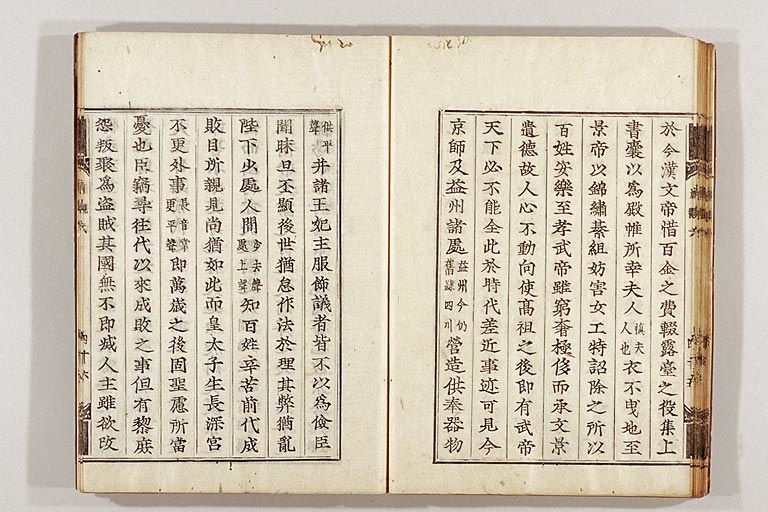 於今漢文帝惜百金之費輟露臺之役集上
書囊以為殿帷所幸夫人慎夫人也衣不曳地至
景帝以錦繡綦組妨害女工特詔除之所以
百姓安樂至孝武帝雖窮奢極侈而承文景
遺德故人心不動向使髙祖之後即有武帝
天下必不能全此於時代差近事迹可見今
京師及益州諸處益州今仍舊隷四川營造供奉器物
供平聲并諸王妃主服飾議者皆不以為儉臣
聞昧旦丕顯後世猶怠作法於理其弊猶亂
陛下少處人間少去聲處上聲知百姓辛苦前代成
敗目所親見尚猶如此而皇太子生長深宮
不更外事長音掌更平聲即萬歳之後固聖慮所當
憂也臣竊尋往代以來成敗之事但有黎庶
怨叛聚為盗賊其國無不即滅人主雖欲改